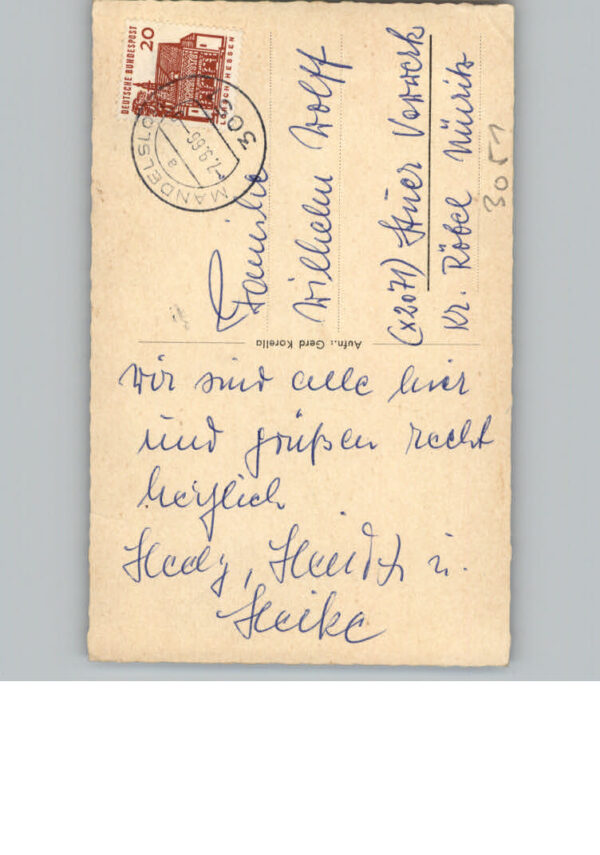 DEUTSCHE BUNDESPOST
20
LORSCH HESSEN
MANDELSLOH
a
-7.9.66
Familie
Wilhelm Wolff
(X2071) Stuer Vorwerk
Kr. Röbel Müritz
3051
Aufn.: Gerd Korella
Wir sind alle hier
und grüßen recht
herzlich
Hedy, u.
Heike